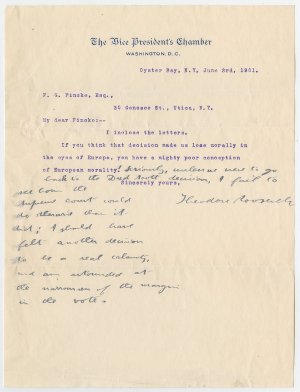 The Vice President's Chamber
WASHINGTON, D.C.
Oyster Bay, N.Y., June 3rd, 1901.
F. G. Fincke, Esq.,
30 Genesee St., Utica, N.Y.
My dear Fincke:--
I inclose the letters.
If you think that decision made us lose morally in
the eyes of Europe, you have a mighty poor conception
of European morality! Seriously, unless we were to go
back to the Dred Scott decision, I fail to
see how the
supreme court could
do otherwise than it
did; I should have
felt another decision
to be a real calamity,
and am astounded at
the narrowness of the margin
in the vote.
Sincerely yours,
Theodore Roosevelt